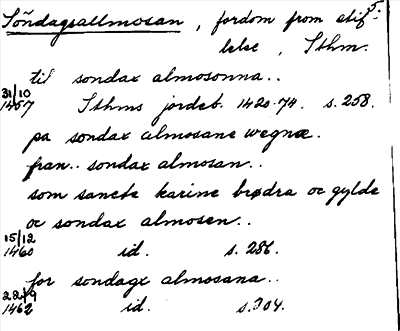 Söndagsallmosan, fordom from stif-
telse, Sthm.
til sondax almosonna..
31/10
1457 Sthms jordeb. 1420-74. s. 258.
pa sondax almosane wegnæ.
fran.. sondax almosan..
som sancte karine brødra oc gylde
oc sondax almosen..
15/12
1460 id. s. 286.
for sondagx almosana..
22/9
1462 id. s. 304.